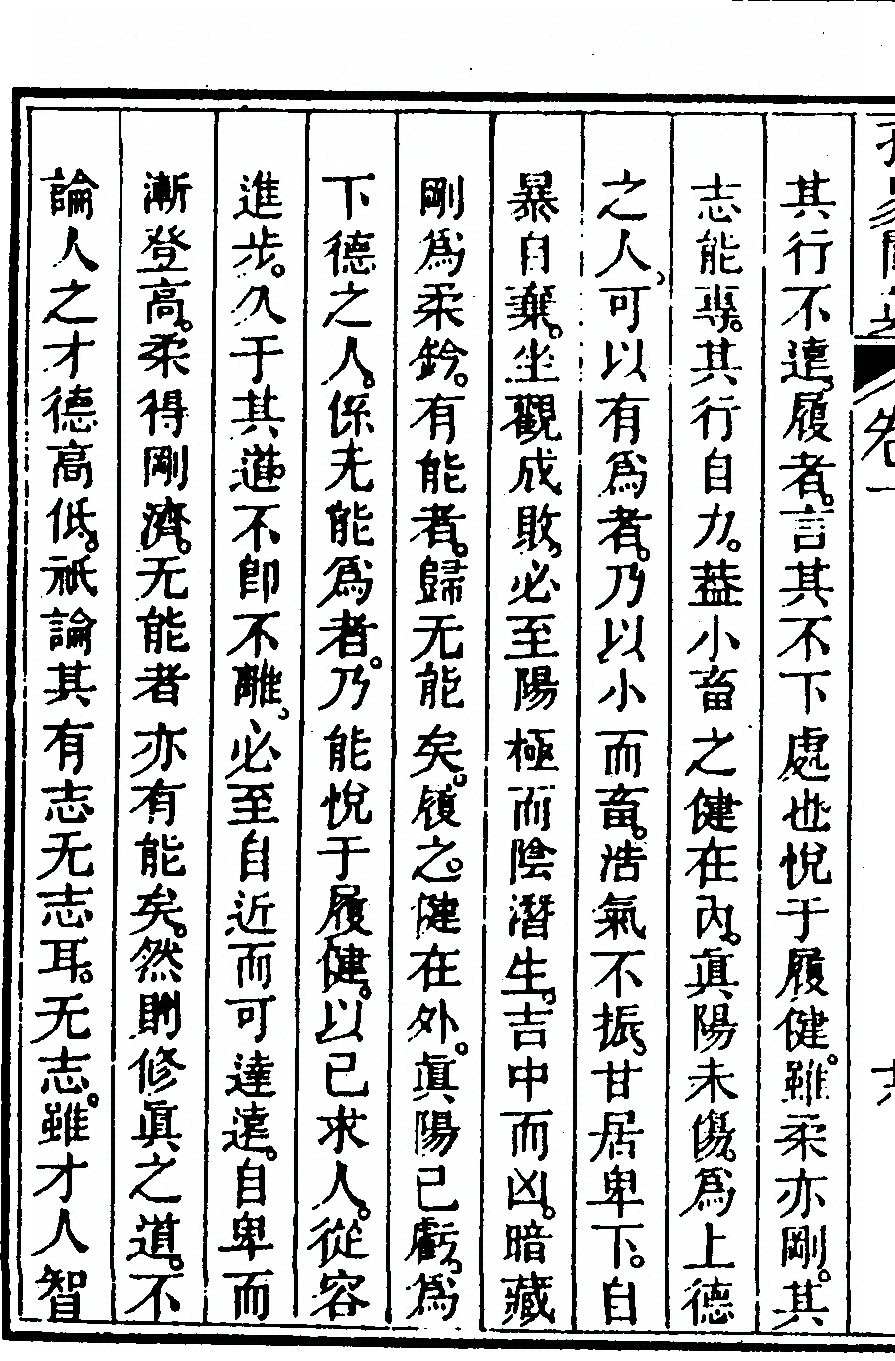 其行不遠履者言其不下處也悅于履健雖柔亦剛其
志能專其行自力葢小畜之健在內眞陽未傷爲上德
之人可以有爲者乃以小而畜浩氣不振甘居卑下自
暴自棄坐觀成敗必至陽極而陰潛生吉中而凶暗藏
剛爲柔鈐有能者歸无能矣履之健在外眞陽已虧爲
下德之人係无能爲者乃能悅于履健以已求人從容
進步久于其道不卽不離必至自近而可達遠自卑而
漸登高柔得剛濟无能者亦有能矣然則修眞之道不
論人之才德高低祇論其有志无志耳无志雖才人智
卷一